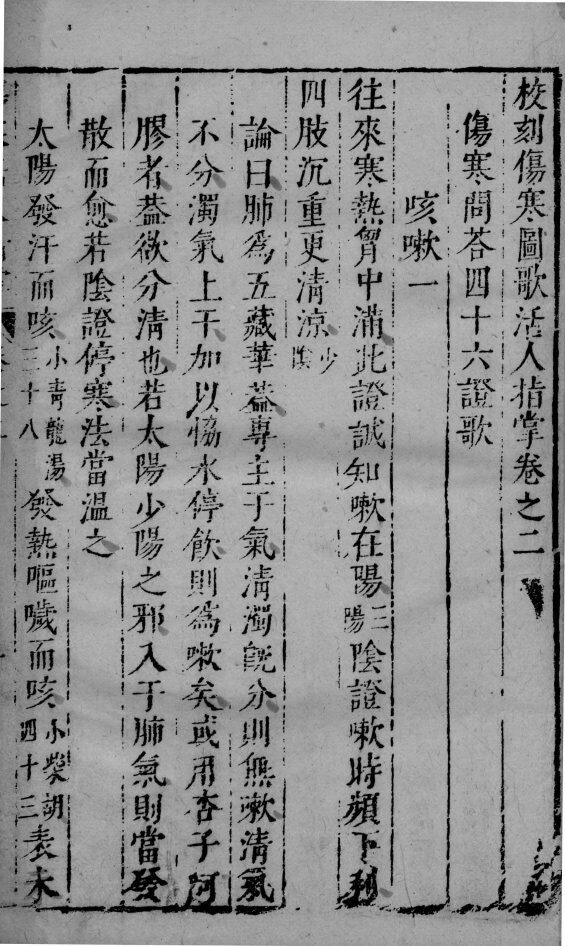 校刻傷寒圖歌活人指掌卷之二
傷寒問荅四十六證歌
咳嗽一
往來寒熱胷中滿此證誠知嗽在陽三陽陰證嗽時頻下利
四肢沉重更清涼少陰
論曰肺爲五藏華葢專主于氣清濁旣分則無嗽清氣
不分濁氣上干加以恊水停飲則爲嗽矣或用杏子阿
膠者葢欲分清也若太陽少陽之邪入于肺氣則當發
散而愈若陰證停寒法當溫之
太陽發汗而咳小青龍湯三十八發熱嘔噦而咳小柴胡四十三表未